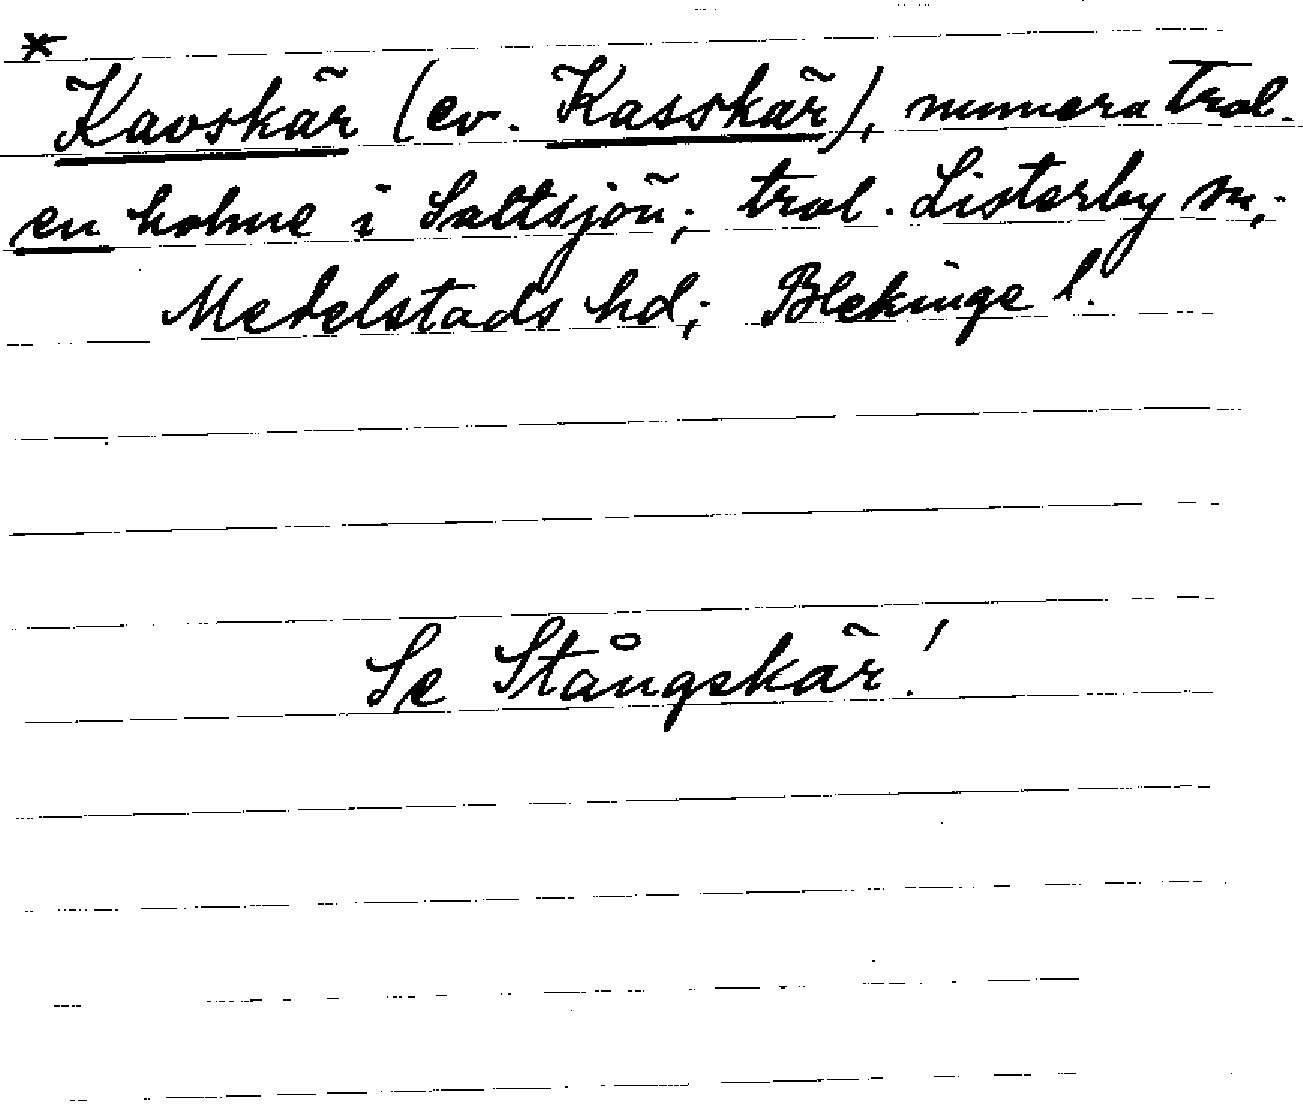 *
Kavskär (ev. Kasskär), numera trol.
en holme i Saltsjön; trol. Listerby sn,;
Medelstads hd; Blekinge l.
Se Stångskär!